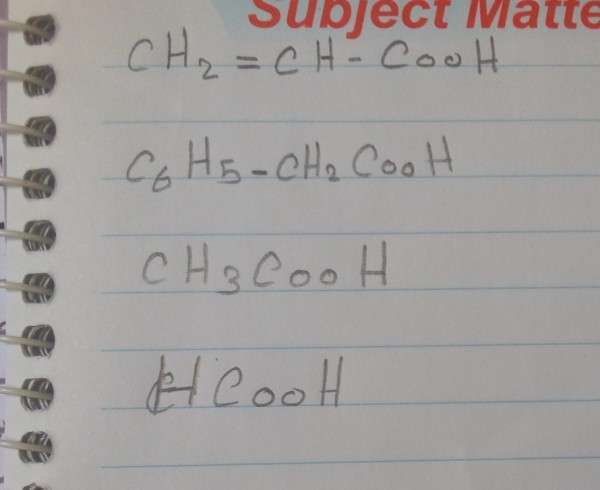 Subject Matte
CH₂=CH-COOH
C₆H₅-CH₂COOH
CH₃COOH
HCOOH